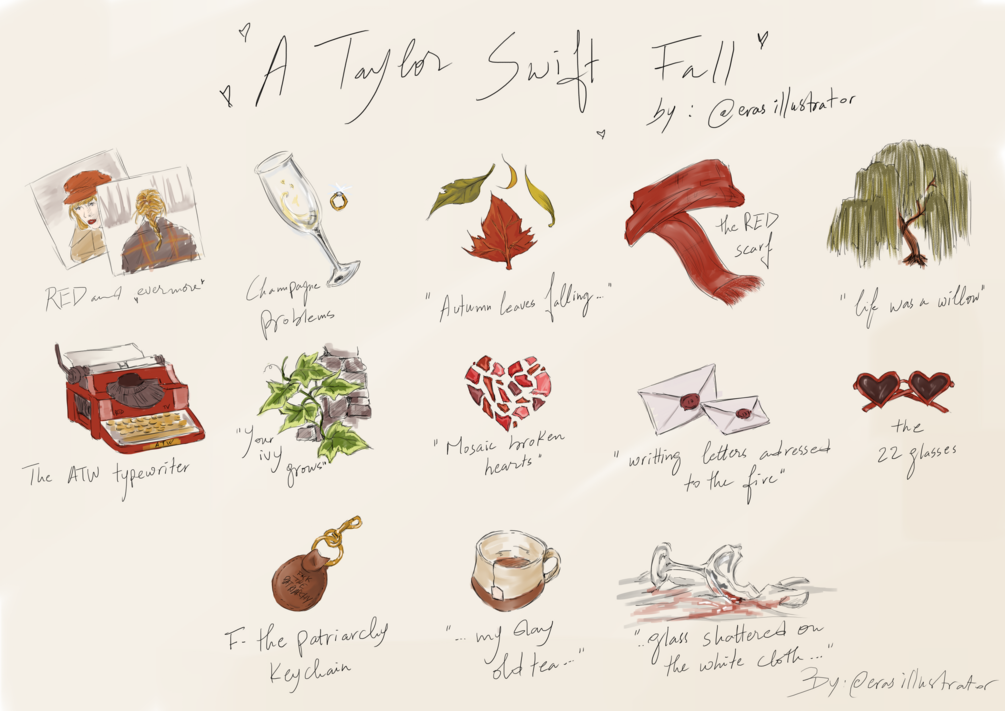 "A Taylor Swift Fall"
by: @erasillustrator
RED and "evermore"
Champagne
Problems
"Autumn leaves falling..."
the RED
scarf
"life was a willow"
The ATW typewriter
"Your
ivy
grows"
"Mosaic broken
hearts"
"writting letters adressed
to the fire"
the
22 glasses
F- the patriarchy
Keychain
"... my day
old tea..."
"..glass shattered on
the white cloth..."
By: @erasillustrator